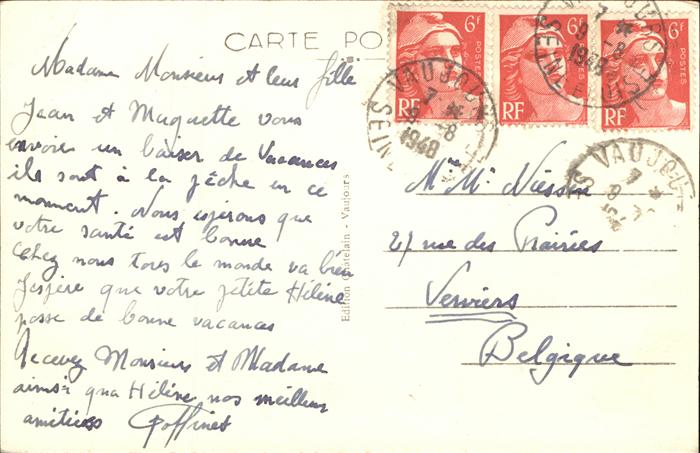 CARTE PO
Madame Monsieur et leur fille
Jean et Muguette vous
envoie un baiser de Vacances
ils sont à la pêche en ce
moment. Nous espérons que
votre santé est bonne
Chez nous tous le monde va bien
J'espère que votre petite Hélène
passe de bonne vacances
Recevez Monsieur et Madame
ainsi qua Hélène nos meilleurs
amitiées Goffinet
Edition Chatelain - Vaujours
6F
POSTES
RF
6F
POSTES
RF
6F
POSTES
RF
VAUJOURS
7 *
9 -8
1948
SEINE
VAUJOURS
7 *
9 -8
1948
SEINE
VAUJOU
7 *
9
Mme Mr Niessen
27 rue des Prairies
Verviers
Belgique